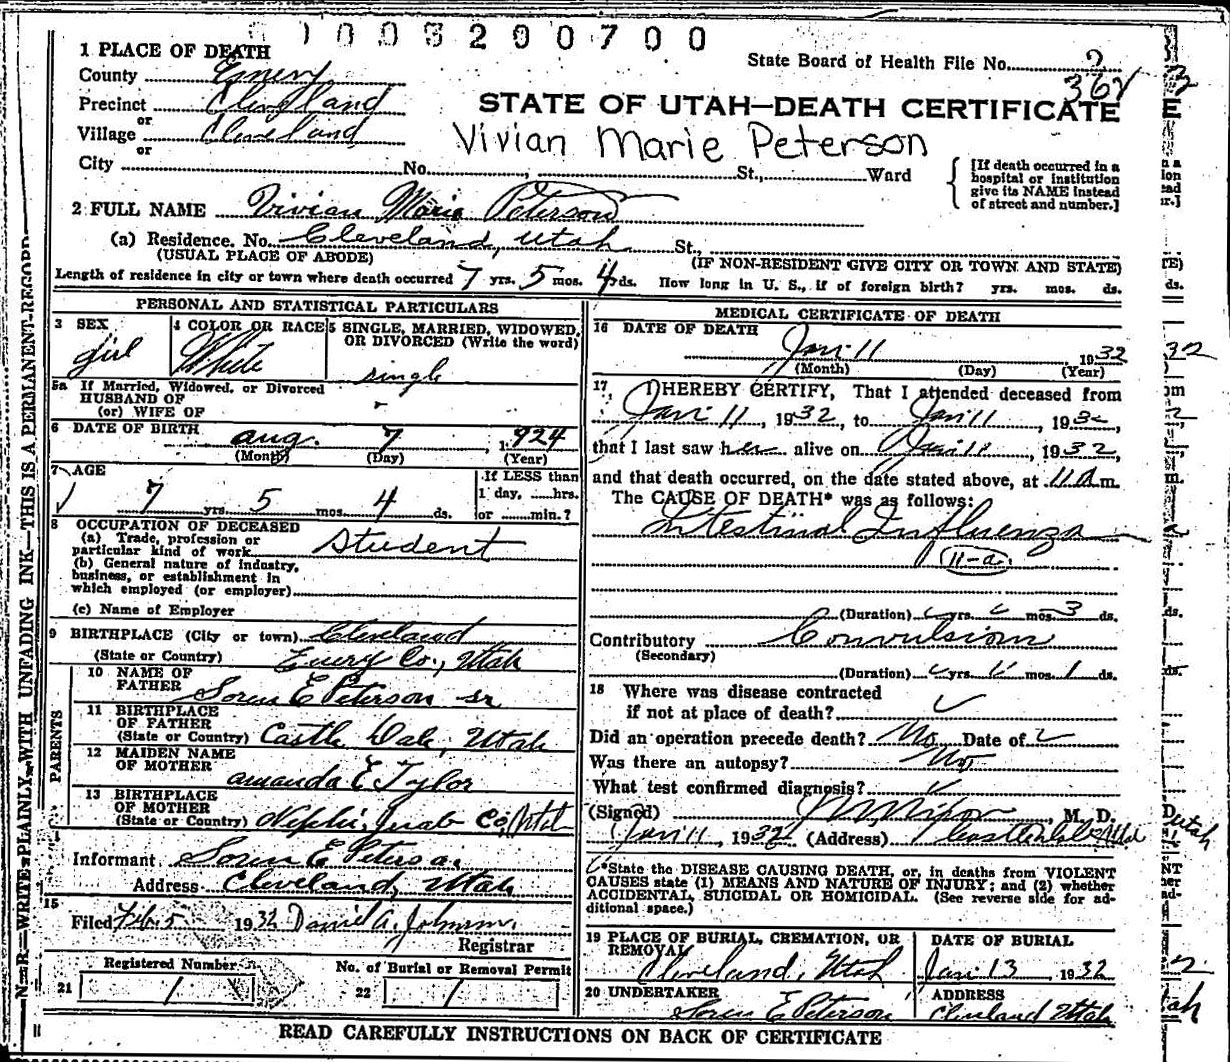 1003200700
1 PLACE OF DEATH
State Board of Health File No. 2
County Emery
362
Precinct Cleveland
STATE OF UTAH—DEATH CERTIFICATE
or
Village Cleveland
Vivian Marie Peterson
or
City No. St., Ward
[If death occurred in a hospital or institution give its NAME instead of street and number.]
2 FULL NAME Vivian Marie Peterson
(a) Residence. No. Cleveland, Utah St.,
(USUAL PLACE OF ABODE) (IF NON-RESIDENT GIVE CITY OR TOWN AND STATE)
Length of residence in city or town where death occurred 7 yrs. 5 mos. 4 ds. How long in U. S., if of foreign birth? yrs. mos. ds.
PERSONAL AND STATISTICAL PARTICULARS
3 SEX girl
4 COLOR OR RACE White
5 SINGLE, MARRIED, WIDOWED, OR DIVORCED (Write the word) single
5a If Married, Widowed, or Divorced
HUSBAND OF
(or) WIFE OF
6 DATE OF BIRTH aug. 7, 1924
(Month) (Day) (Year)
7 AGE 7 yrs. 5 mos. 4 ds.
If LESS than 1 day, hrs. or min.?
8 OCCUPATION OF DECEASED
(a) Trade, profession or particular kind of work Student
(b) General nature of industry, business, or establishment in which employed (or employer)
(c) Name of Employer
9 BIRTHPLACE (City or town) Cleveland
(State or Country) Emery Co., Utah
PARENTS
10 NAME OF FATHER Soren E Peterson sr
11 BIRTHPLACE OF FATHER (State or Country) Castle Dale, Utah
12 MAIDEN NAME OF MOTHER amanda E Tylor
13 BIRTHPLACE OF MOTHER (State or Country) Nephi, Juab Co, Utah
Informant Soren E. Peterson
Address Cleveland, Utah
15
Filed Feb 5 1932 Daniel A. Johnson
Registrar
Registered Number
21 1
No. of Burial or Removal Permit
22 1
MEDICAL CERTIFICATE OF DEATH
16 DATE OF DEATH
Jan 11 1932
(Month) (Day) (Year)
17 I HEREBY CERTIFY, That I attended deceased from
Jan 11, 1932, to Jan 11, 1932,
that I last saw her alive on Jan 11, 1932,
and that death occurred, on the date stated above, at 11 a m.
The CAUSE OF DEATH* was as follows:
Intestinal Influenza
11-a.
(Duration) yrs. mos. 3 ds.
Contributory Convulsion
(Secondary)
(Duration) yrs. mos. 1 ds.
18 Where was disease contracted
if not at place of death?
Did an operation precede death? No Date of
Was there an autopsy? No
What test confirmed diagnosis?
(Signed), M. D.
Jan 11, 1932 (Address) Castledale Utah
*State the DISEASE CAUSING DEATH, or, in deaths from VIOLENT
CAUSES state (1) MEANS AND NATURE OF INJURY; and (2) whether
ACCIDENTAL, SUICIDAL OR HOMICIDAL. (See reverse side for ad-
ditional space.)
19 PLACE OF BURIAL, CREMATION, OR REMOVAL
Cleveland, Utah
DATE OF BURIAL
Jan 13 1932
20 UNDERTAKER
Soren E Peterson
ADDRESS
Cleveland Utah
READ CAREFULLY INSTRUCTIONS ON BACK OF CERTIFICATE
N. B.—WRITE PLAINLY WITH UNFADING INK—THIS IS A PERMANENT RECORD